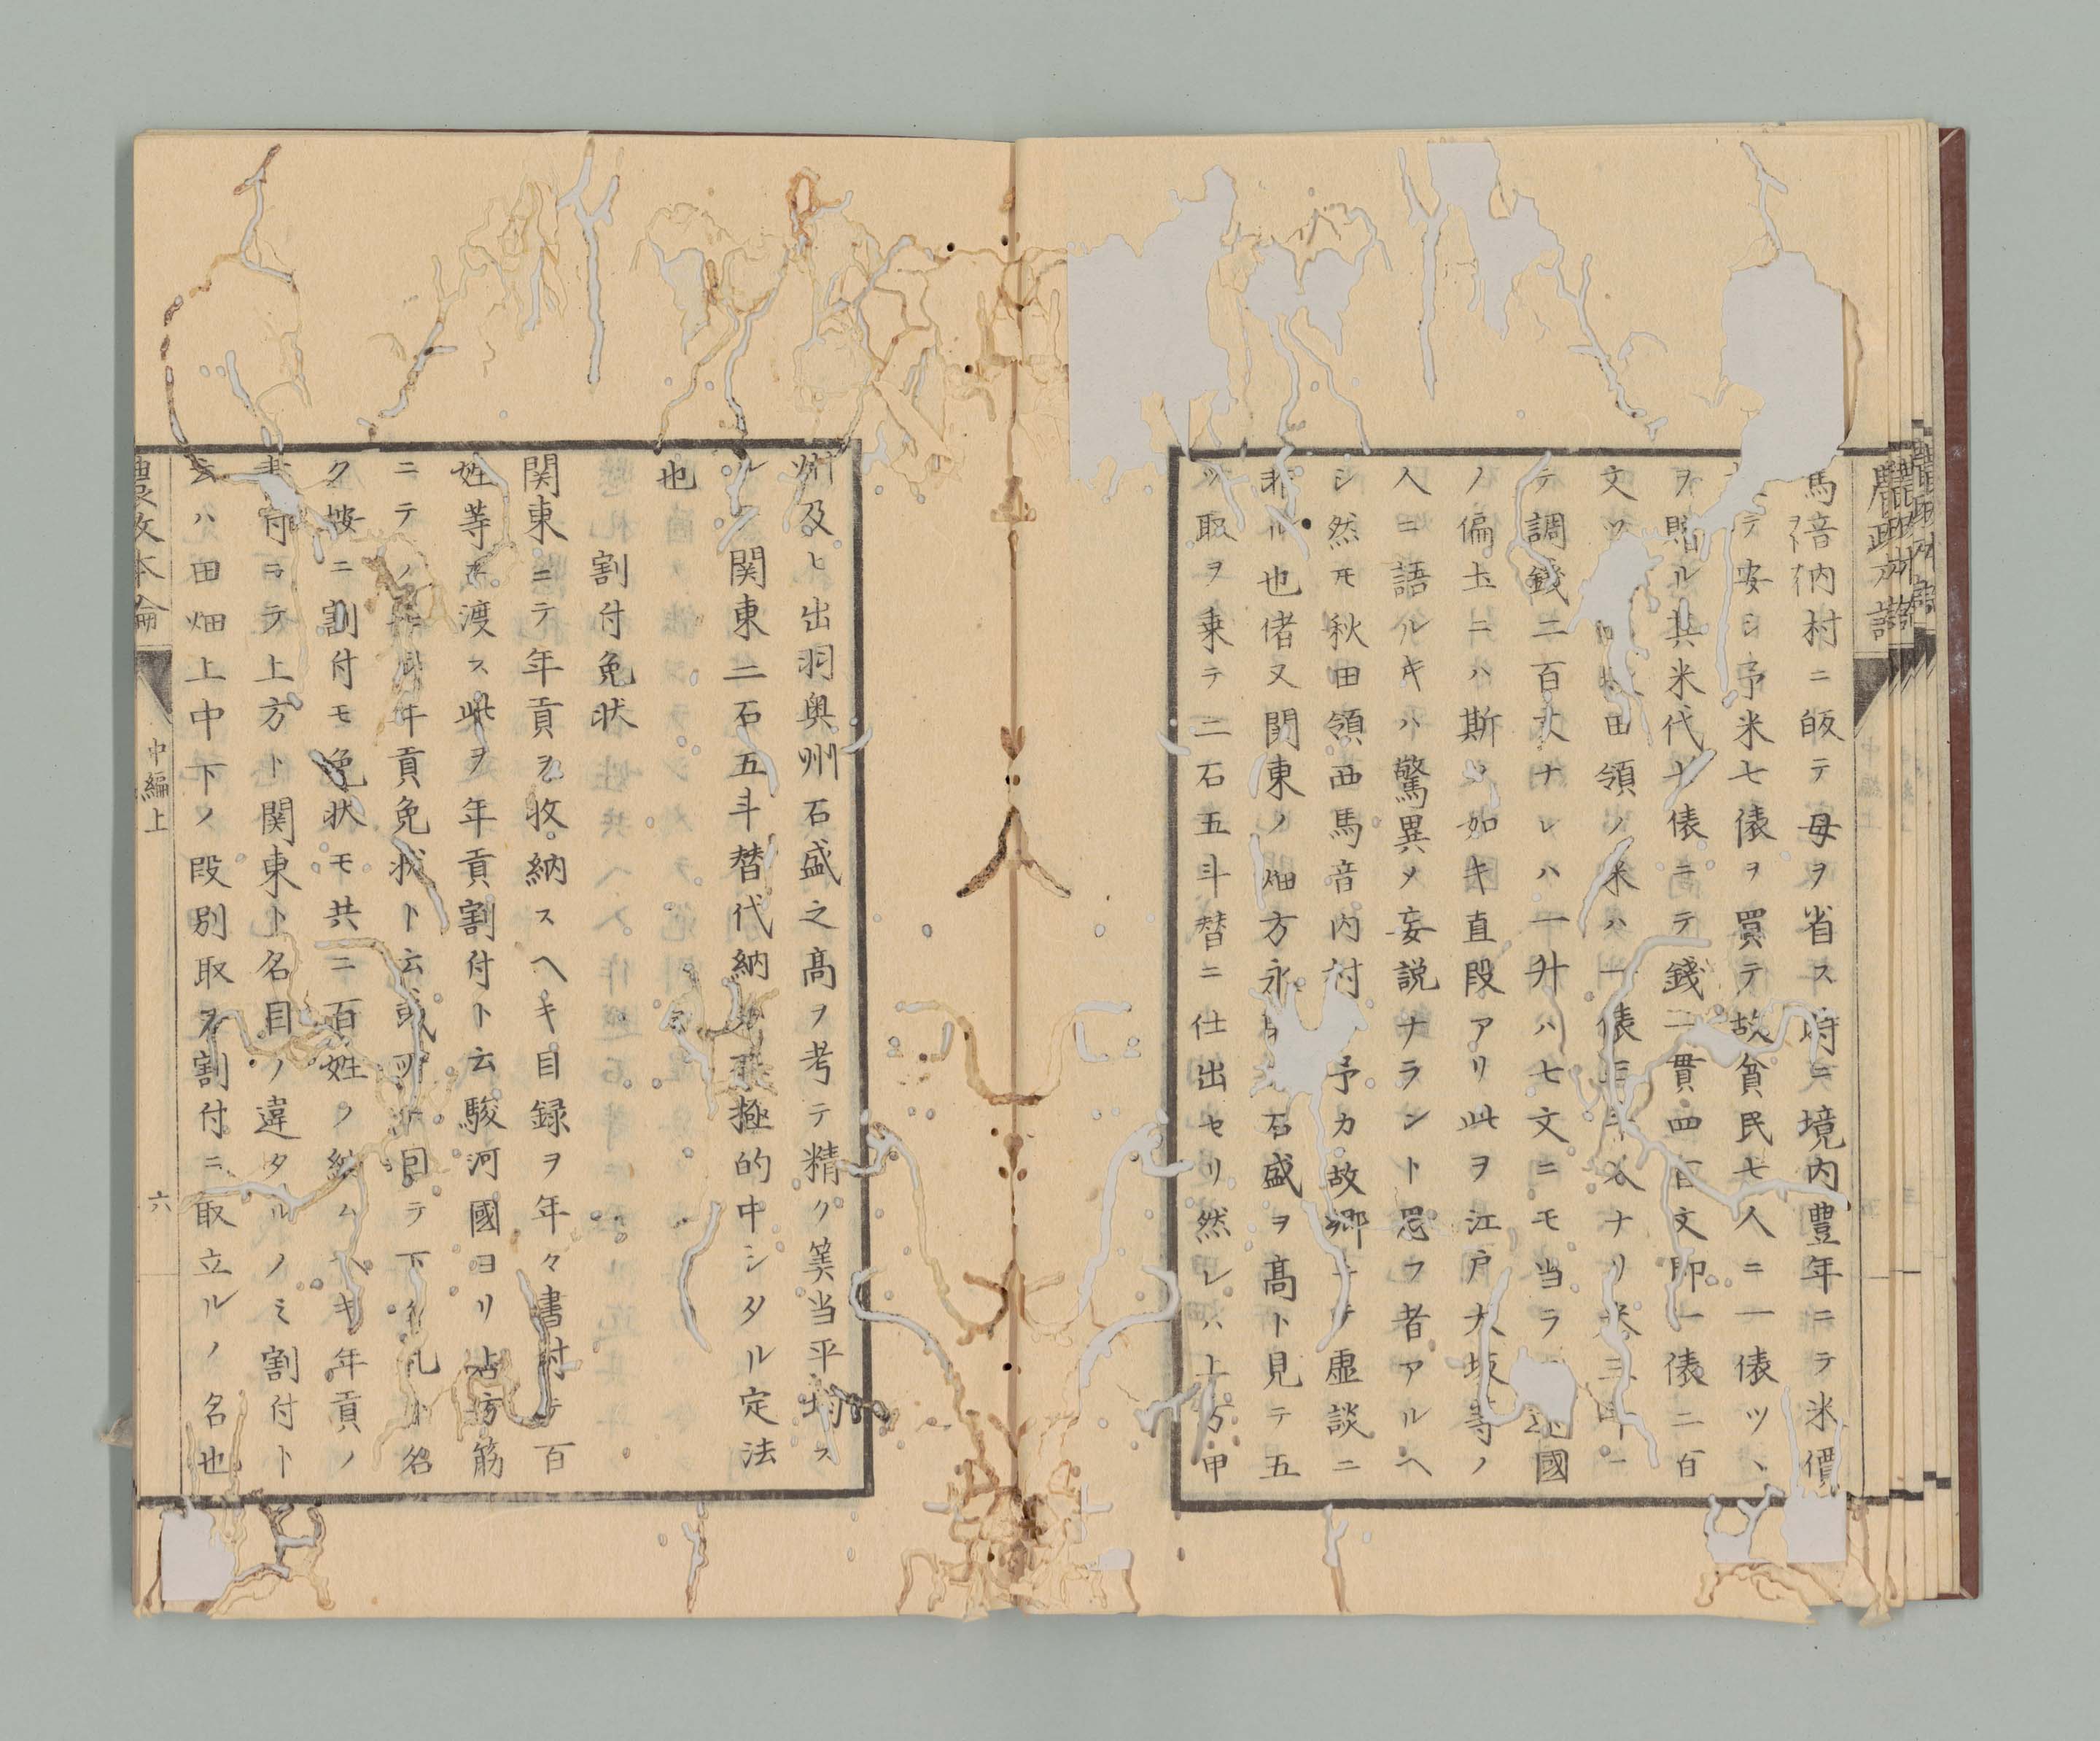 馬音内村ニ皈テ母ヲ省ス時ニ境内豊年ニテ米價
テ安シ予米七俵ヲ買テ故貧民七人ニ一俵ツヽ
ヲ賜ル其米代七俵ニテ錢二貫四百文即一俵二百
文ツ田領ノ米ハ一俵三斗入ナリ米三斗一
テ調錢二百文ナレハ一升ハ七文ニモ当ラ國
ノ偏土ニハ斯ノ如キ直段アリ此ヲ江戸大坂等ノ
人ニ語ルキハ驚異メ妄説ナラント思フ者アルヘ
シ然モ秋田領西馬音内村予カ故郷ニテ虚談ニ
非ル也偖又関東ノ畑方永石盛ヲ高ト見テ五
ツ取ヲ乗テ二石五斗替ニ仕出セリ然レハ上方甲
州及ヒ出羽奥州石盛之高ヲ考テ精ク筭当平均ス
ルニ関東二石五斗替代納至極的中シタル定法
也
割付免状
関東ニテ年貢ヲ收納スヘキ目録ヲ年々書付テ百
姓等ニ渡ス此ヲ年貢割付ト云駿河國ヨリ上方筋
ニテノ年貢免状ト云或所ニ因テ下ケ札ト名
ク按ニ割付モ免状モ共ニ百姓ノ納ムヘキ年貢ノ
書付ニテ上方ト関東ト名目ノ違タルノミ割付ト
云ハ田畑上中下ノ段別取ヲ割付ニ取立ルノ名也
農政本論
中編上
六